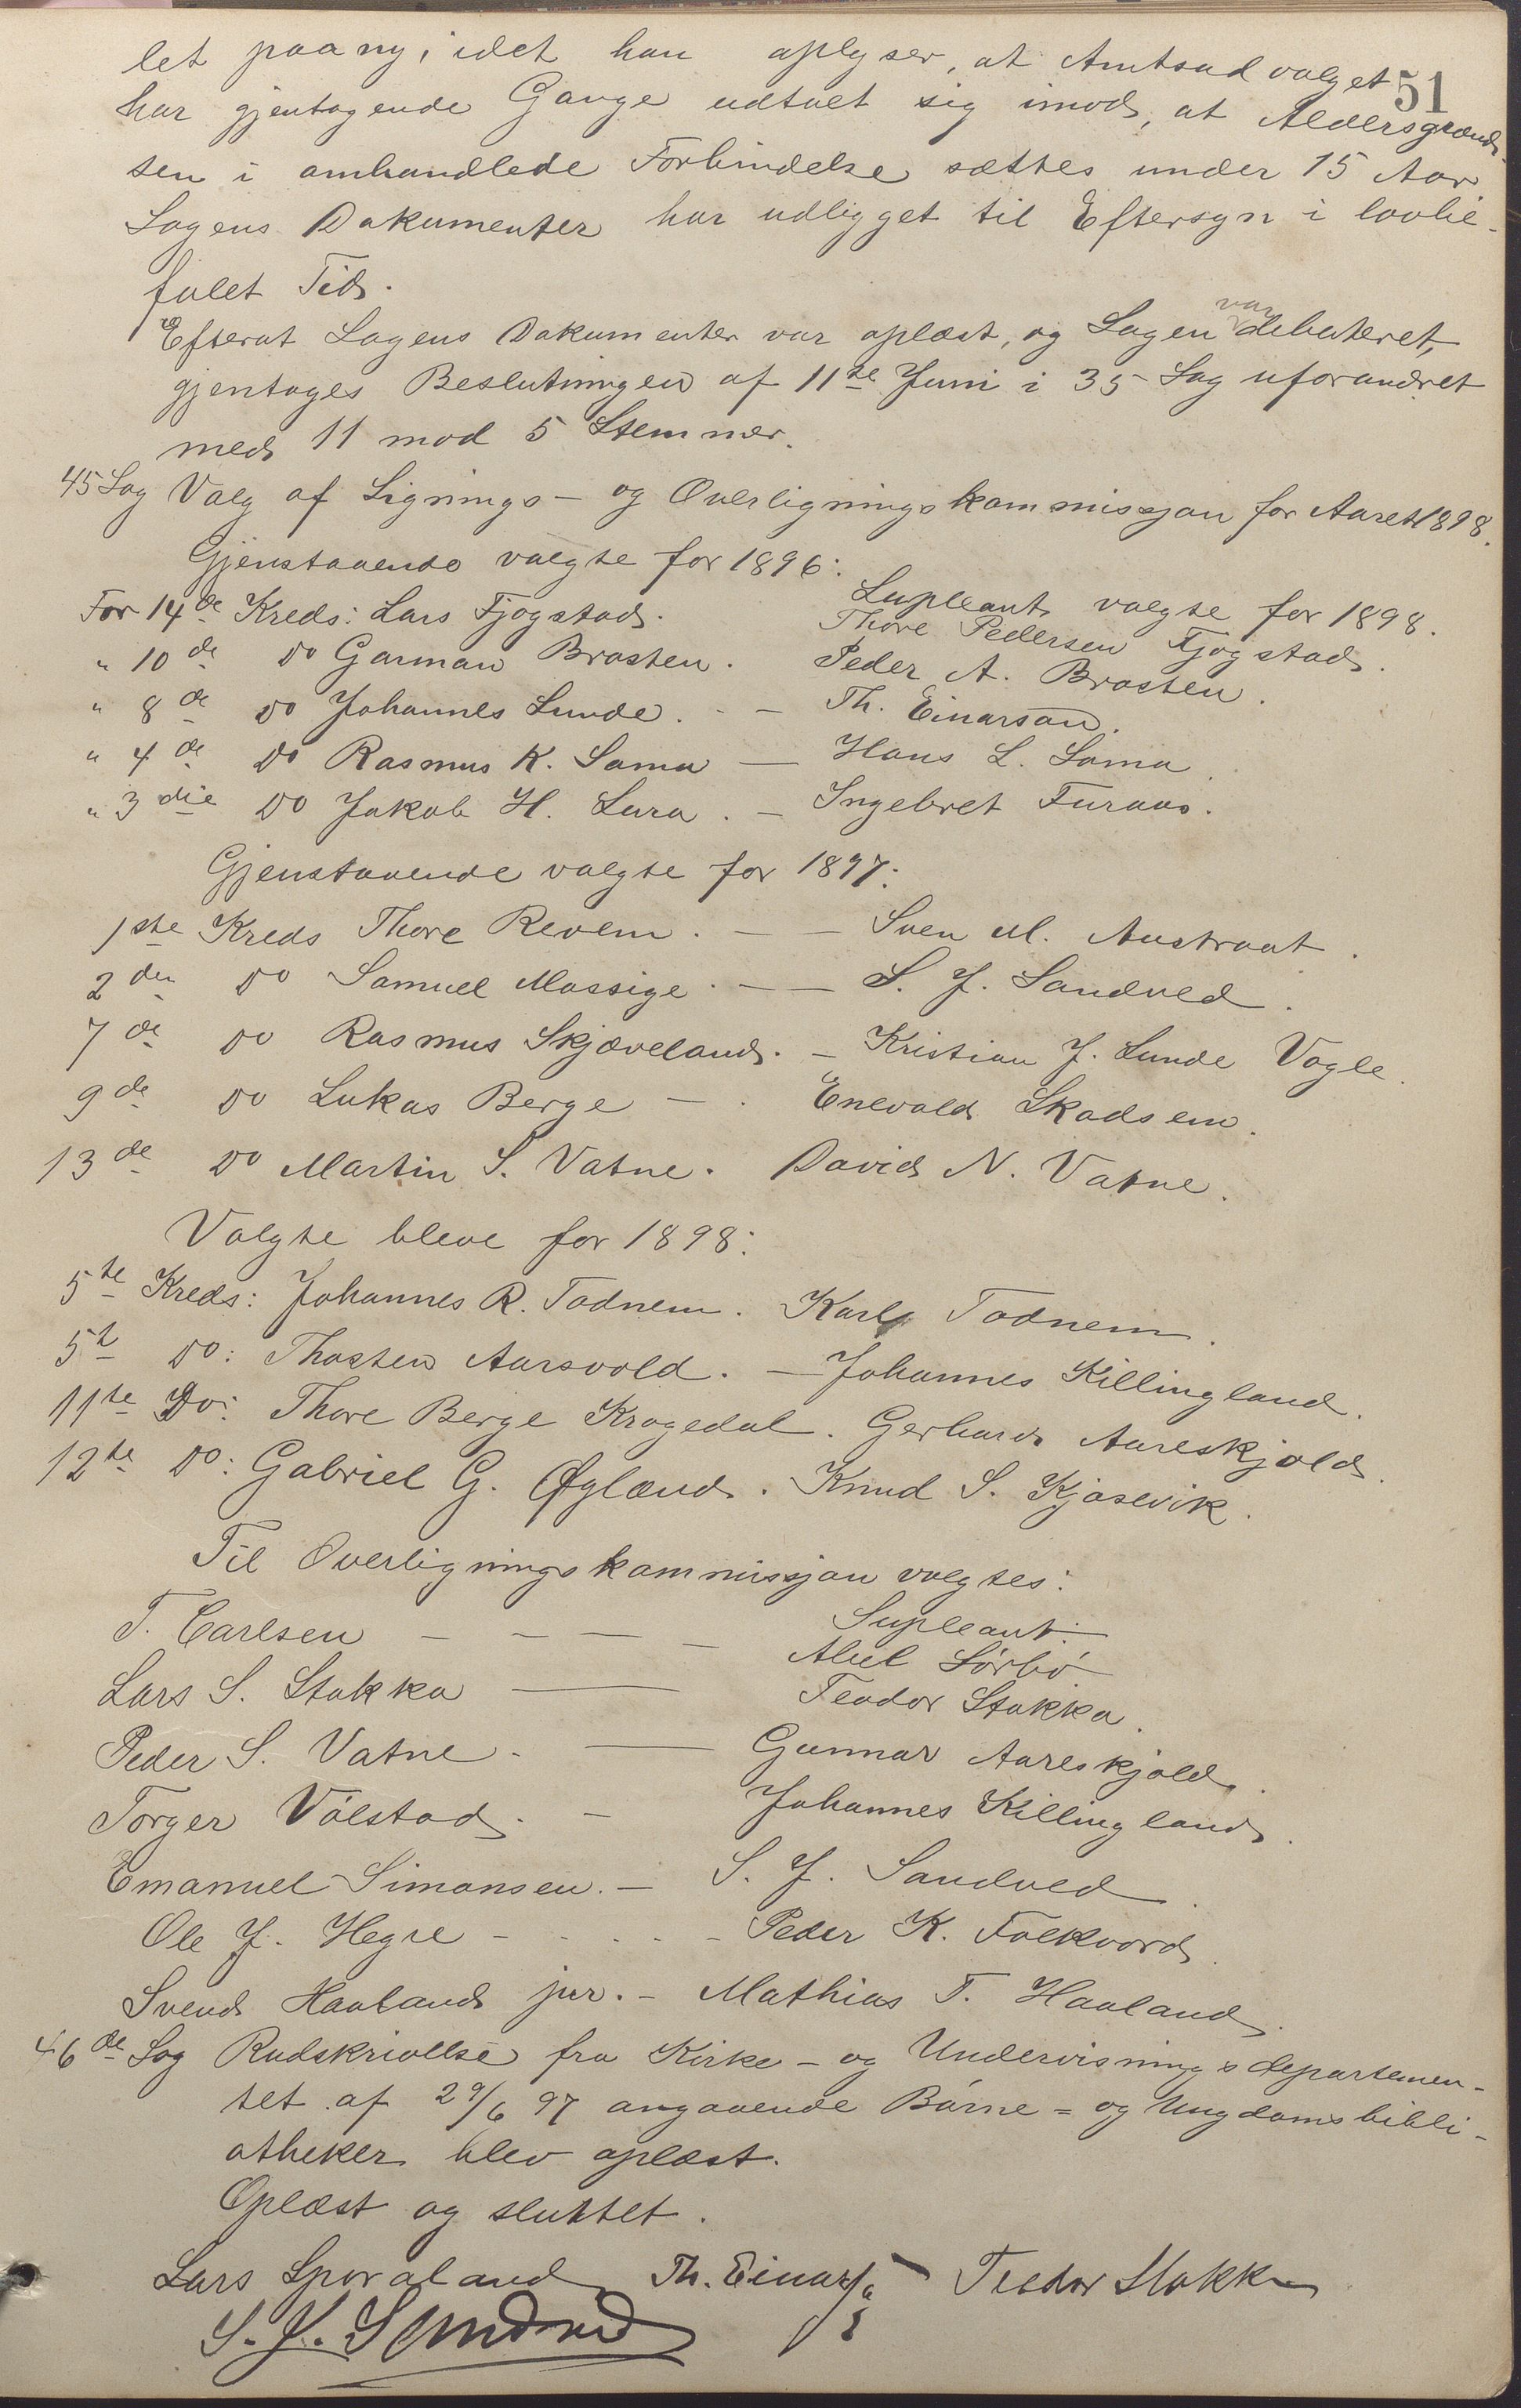 51
let paany, idet han oplyser, at Amtsudvalget
har gjentagende Gange udtalt sig imod, at Aldersgrænd-
sen i omhandlede Forbindelse sættes under 15 Aar
Sagens Dokumenter har udligget til Eftersyn i lovbe-
falet Tid.
Efterat Sagens Dokumenter var oplæst, og Sagen var debateret,
gjentages Beslutningen af 11te Juni i 35 Sag uforandret
med 11 mod 5 Stemmer.
45 Sag Valg af Lignings- og Overligningskommissjon for Aaret 1898.
Gjenstaaende valgte for 1896: Supleant valgte for 1898.
For 14de Kreds: Lars Fjogstad. Thore Pedersen Fjogstad.
" 10de Do Garman Brasten. Peder A. Brasten.
" 8de Do Johannes Lunde. - - Th. Einarson.
" 4de Do Rasmus K. Soma — Hans L. Soma.
" 3die Do Jakob H. Lura. — Ingebret Furaas.
Gjenstaaende valgte for 1897:
1ste Kreds Thore Revem. — — Sven M. Austraat.
2den Do Samuel Massige. — — S. J. Sandved.
7de Do Rasmus Skjæveland. — Kristian J. Lunde Vagle.
9de Do Lukas Berge — . Enevald Skadsem.
13de Do Martin S. Vatne. David N. Vatne.
Valgte bleve for 1898:
5te Kreds: Johannes R. Todnem. Karl Todnem.
5te Do: Thosten Aarsvold. — Johannes Killingland.
11te Do: Thore Berge Kragedal. Gerhard Aareskjold.
12te Do: Gabriel G. Øglænd. Knud S. Kjosevik.
Til Overligningskommissjon valgtes:
Supleant:
T. Carlsen — — — — Abel Sørbø
Lars S. Stokka —— Teodor Stokka.
Peder S. Vatne. —— Gunnar Aareskjold.
Torger Vólstad. — Johannes Killingland.
Emanuel Simonsen. — S. J. Sandved.
Ole J. Hegre - - - - - Peder K. Folkvord.
Svend Haaland jur. - Mathias T. Haaland.
46de Sag Rudskrivelse fra Kirke- og Undervisningsdepartemen-
tet af 29/6 97 angaaende Børne= og Ungdomsbibli-
otheker blev oplæst.
Oplæst og sluttet.
Lars Sporaland Th. Einarson Teodor Stokka
S. J. Sandved